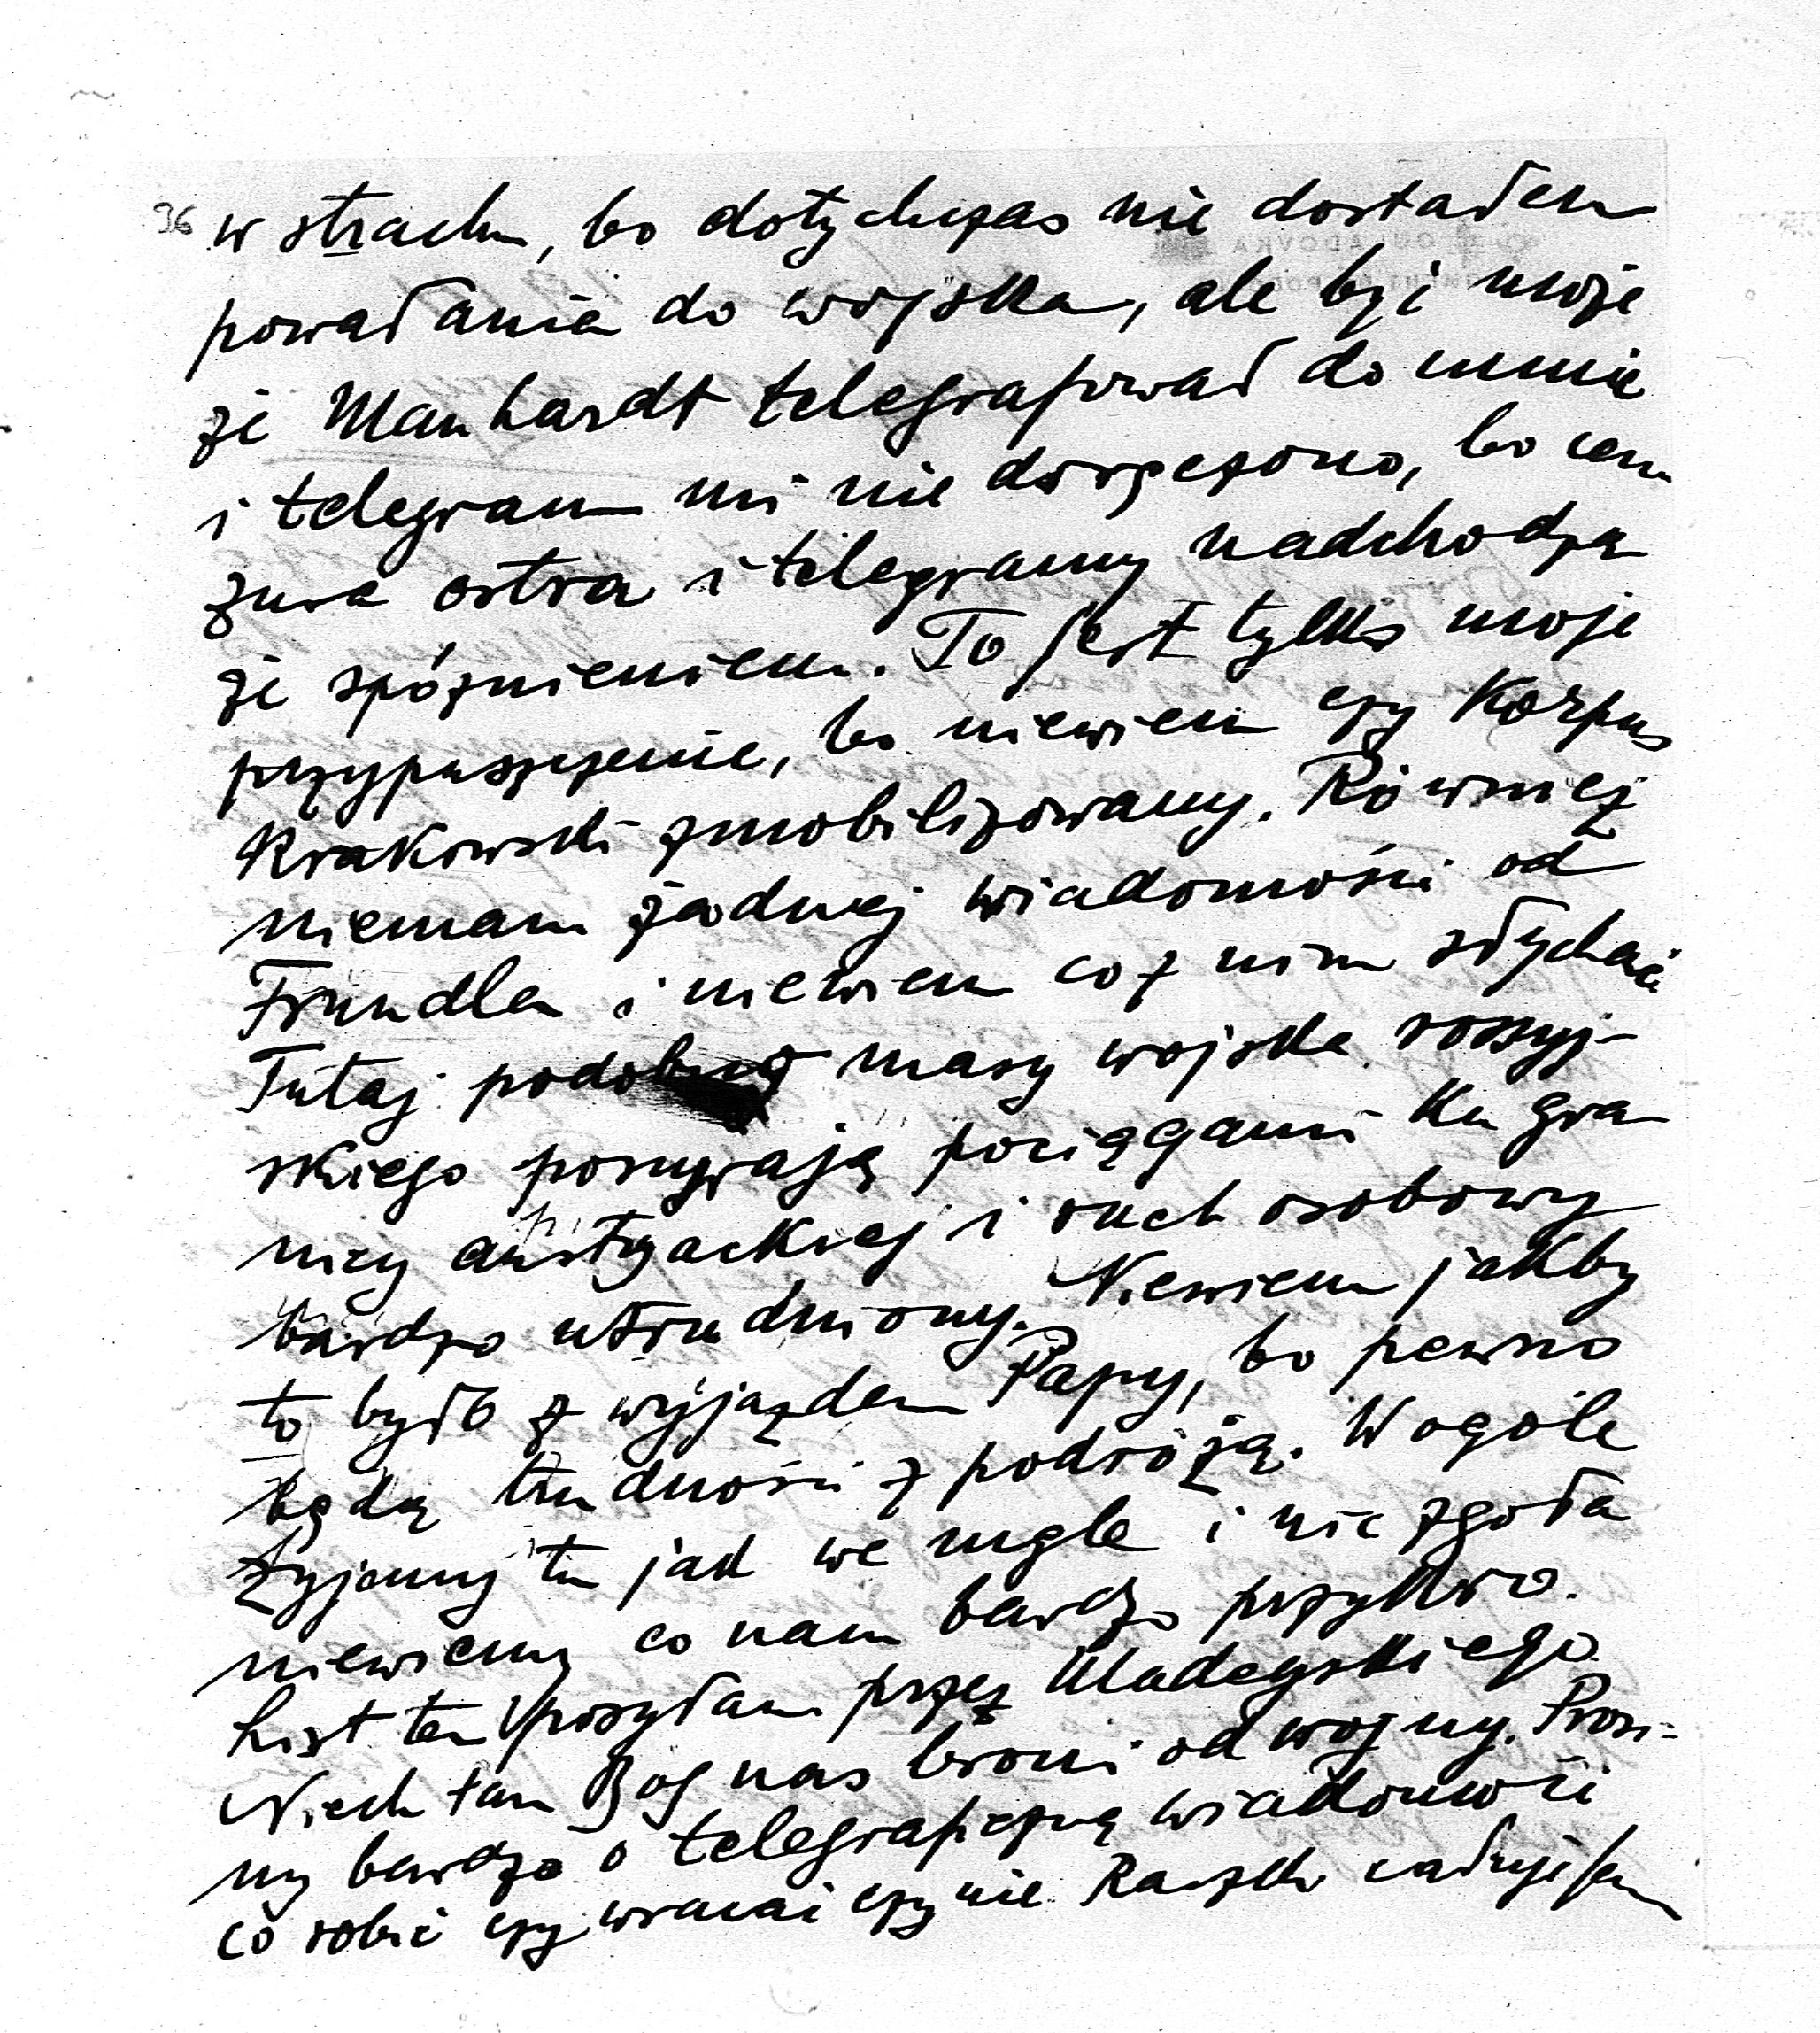 36 w strachu, bo dotychczas nie dostałem
powołania do wojska, ale być może
że Manhardt telegrafował do mnie
i telegram mi nie doręczono, bo cen
zura ostra i telegramy nadchodzą
ze spóźnieniem. To jest tylko moje
przypuszczenie, bo niewiem czy Korpus
Krakowski zmobilizowany. Również
niemam żadnej wiadomości od
Frundla i niewiem co z nim słychać
Tutaj podobno masy wojska rossyj-
skiego posuwają pociągami ku gra
nicy austryackiej i ruch osobowy
bardzo utrudniony. Niewiem jakby
to było z wyjazdem Papy, bo pewno
będą trudności z podróżą. Wogóle
żyjemy tu jak we mgle i nic zgoła
niewiemy co nam bardzo przykro.
List ten posyłam przez Madeyskiego
Niech tam Bóg nas broni od wojny. Prosi=
my bardzo o telegraficzną wiadomości
co robić czy wracać czy nie Raczki całuje